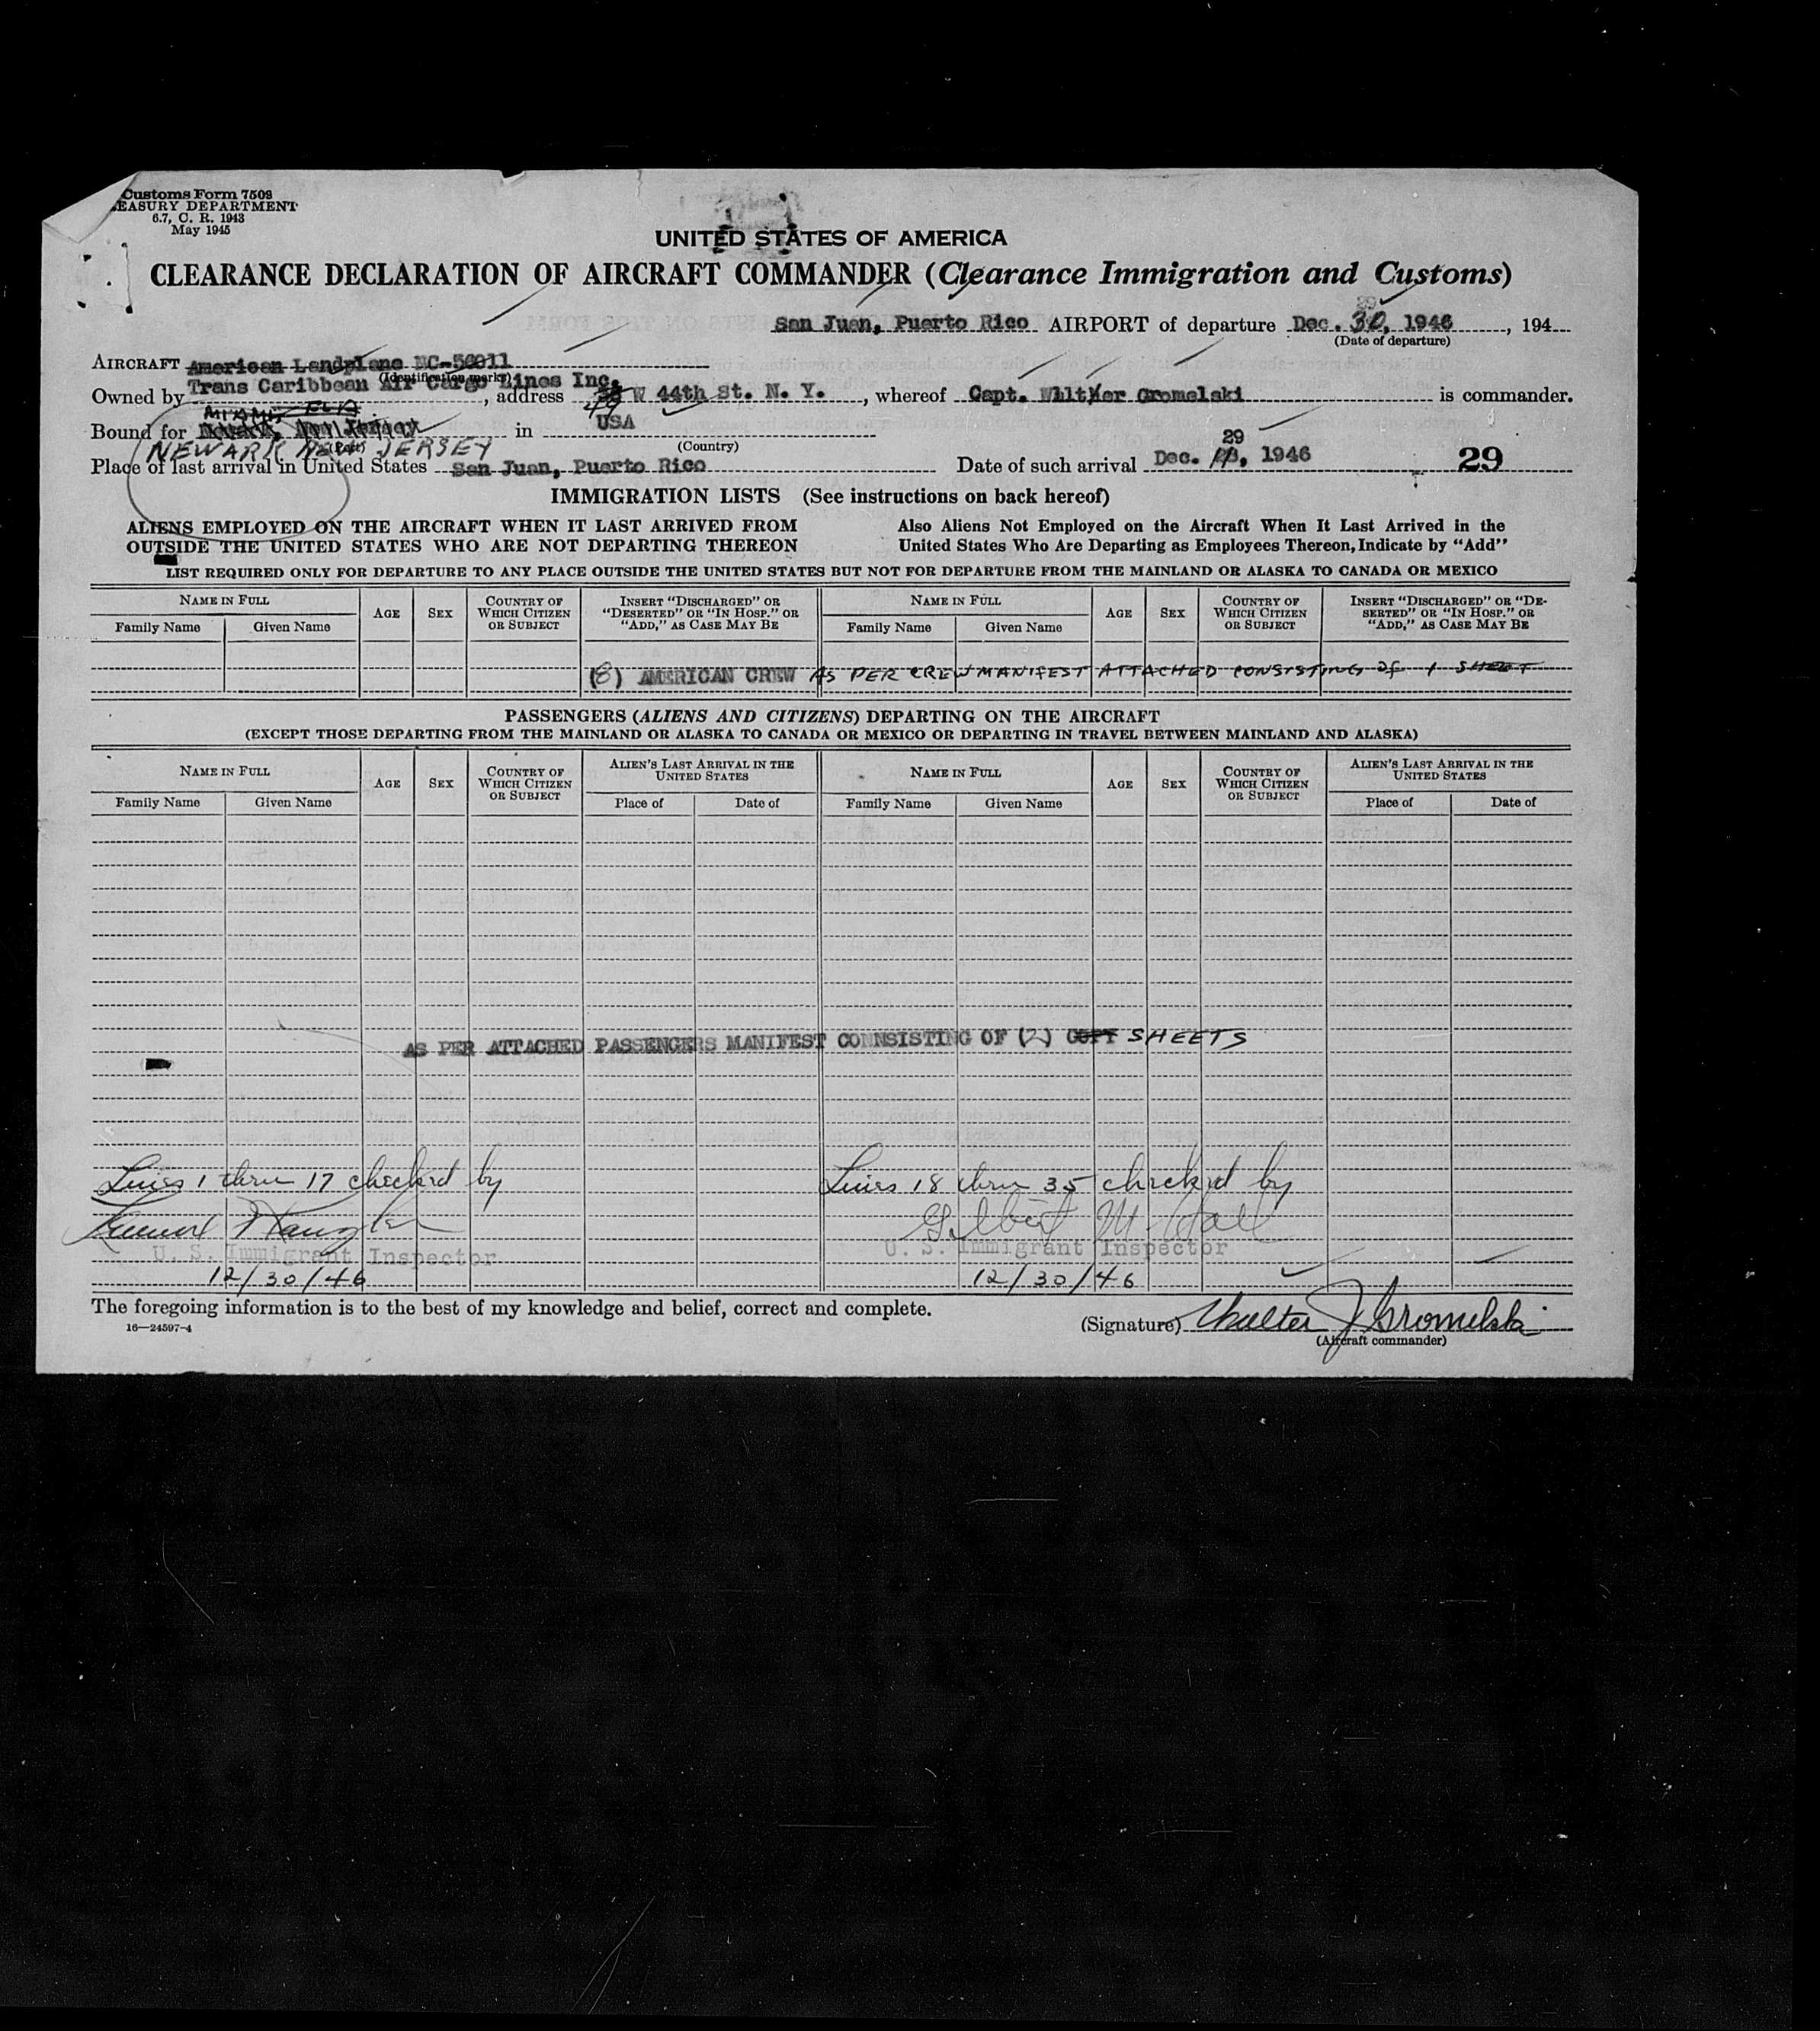 Customs Form 7509
TREASURY DEPARTMENT
6.7, C. R. 1943
May 1945
UNITED STATES OF AMERICA
CLEARANCE DECLARATION OF AIRCRAFT COMMANDER (Clearance Immigration and Customs)
San Juan, Puerto Rico AIRPORT of departure Dec. 30, 1946, 194
(Date of departure)
AIRCRAFT American Landplane NC-56011
(Identification marks)
Owned by Trans Caribbean Air Cargo Lines Inc., address 49 W 44th St. N. Y., whereof Capt. Walther Gromelski is commander.
MIAMI FLA.
Bound for Newark, New Jersey in USA
NEWARK NEW JERSEY (Country)
Place of last arrival in United States San Juan, Puerto Rico Date of such arrival Dec. 29, 1946 29
IMMIGRATION LISTS (See instructions on back hereof)
ALIENS EMPLOYED ON THE AIRCRAFT WHEN IT LAST ARRIVED FROM OUTSIDE THE UNITED STATES WHO ARE NOT DEPARTING THEREON
Also Aliens Not Employed on the Aircraft When It Last Arrived in the United States Who Are Departing as Employees Thereon, Indicate by "Add"
LIST REQUIRED ONLY FOR DEPARTURE TO ANY PLACE OUTSIDE THE UNITED STATES BUT NOT FOR DEPARTURE FROM THE MAINLAND OR ALASKA TO CANADA OR MEXICO
NAME IN FULL AGE SEX COUNTRY OF WHICH CITIZEN OR SUBJECT INSERT "DISCHARGED" OR "DESERTED" OR "IN HOSP." OR "ADD," AS CASE MAY BE NAME IN FULL AGE SEX COUNTRY OF WHICH CITIZEN OR SUBJECT INSERT "DISCHARGED" OR "DE-SERTED" OR "IN HOSP." OR "ADD," AS CASE MAY BE
Family Name Given Name Family Name Given Name
(8) AMERICAN CREW AS PER CREW MANIFEST ATTACHED CONSISTING of 1 SHEET
PASSENGERS (ALIENS AND CITIZENS) DEPARTING ON THE AIRCRAFT
(EXCEPT THOSE DEPARTING FROM THE MAINLAND OR ALASKA TO CANADA OR MEXICO OR DEPARTING IN TRAVEL BETWEEN MAINLAND AND ALASKA)
NAME IN FULL AGE SEX COUNTRY OF WHICH CITIZEN OR SUBJECT ALIEN'S LAST ARRIVAL IN THE UNITED STATES NAME IN FULL AGE SEX COUNTRY OF WHICH CITIZEN OR SUBJECT ALIEN'S LAST ARRIVAL IN THE UNITED STATES
Family Name Given Name Place of Date of Family Name Given Name Place of Date of
AS PER ATTACHED PASSENGERS MANIFEST CONNSISTING OF (2) COPY SHEETS
Lines 1 thru 17 checked by Lines 18 thru 35 checked by
Gilbert M. Hall
U. S. Immigrant Inspector U. S. Immigrant Inspector
12/30/46 12/30/46
The foregoing information is to the best of my knowledge and belief, correct and complete.
16—24597-4
(Signature) Walter J Gromelski
(Aircraft commander)